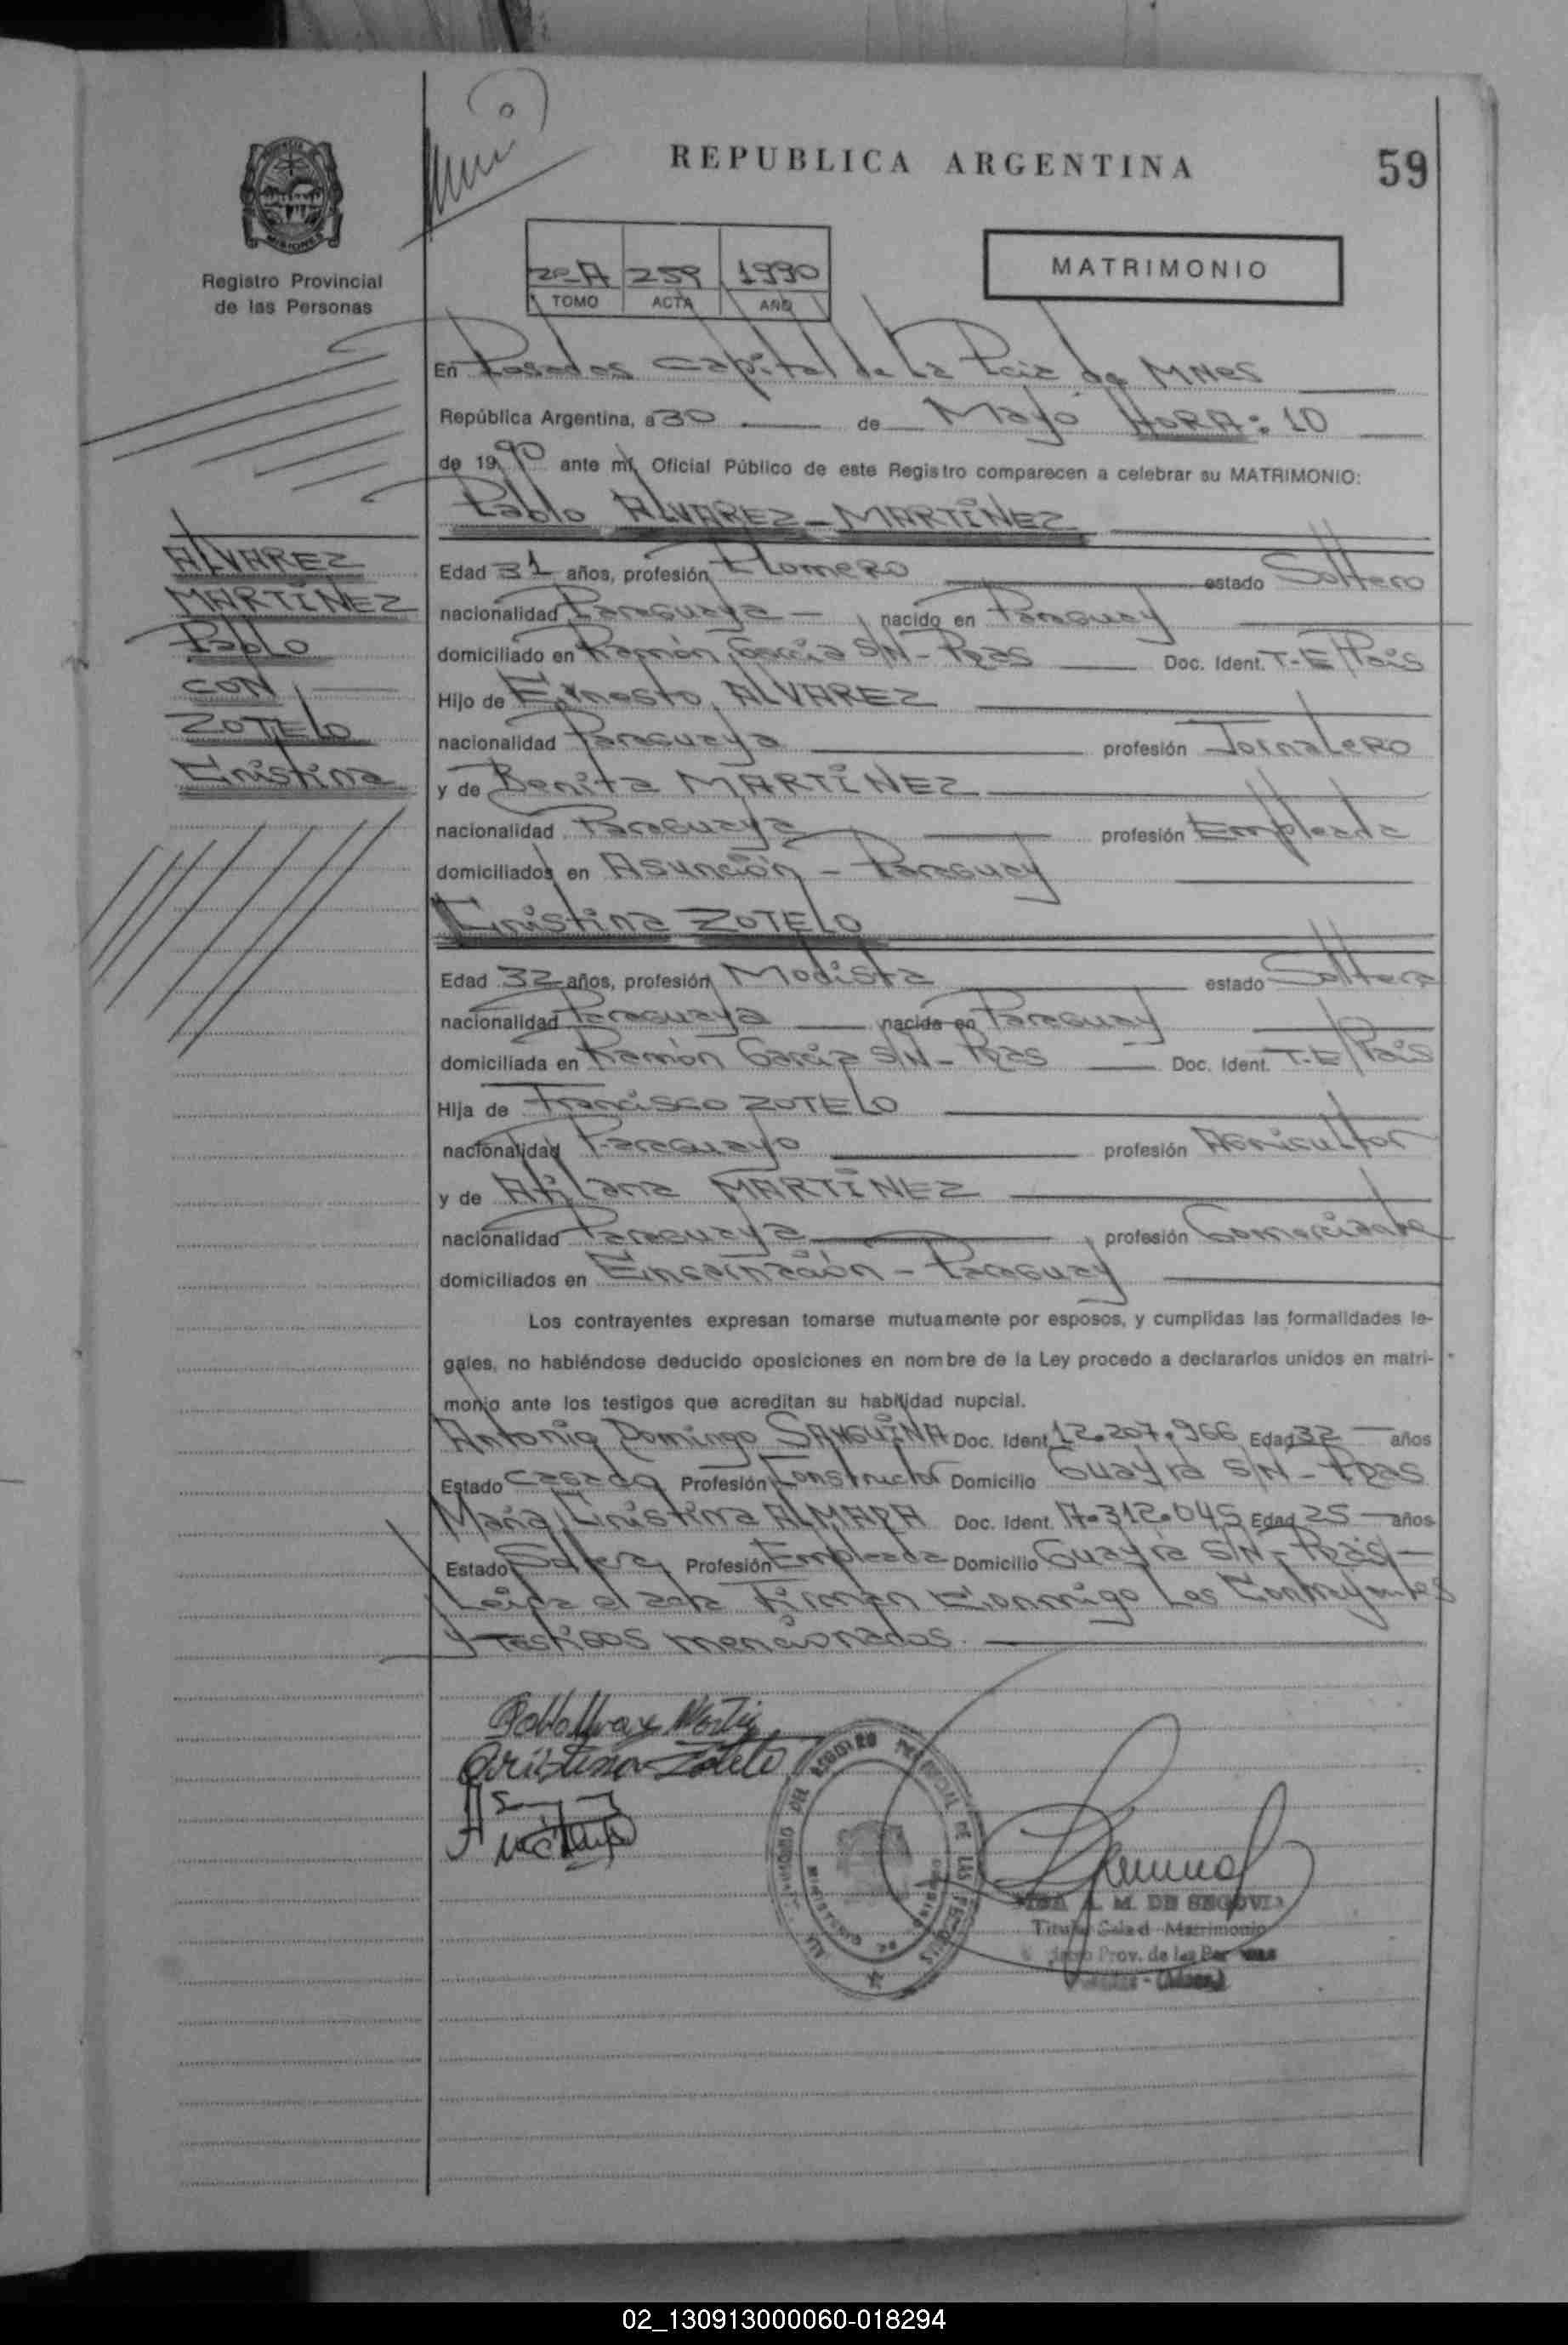 REPUBLICA ARGENTINA
59
Registro Provincial
de las Personas
2º-A 259 1990
TOMO ACTA AÑO
MATRIMONIO
En Posadas Capital de La Pcia de MNes
República Argentina, a 30 de Mayo HORA: 10
de 1990 ante mí, Oficial Público de este Registro comparecen a celebrar su MATRIMONIO:
Pablo ALVAREZ-MARTINEZ
ALVAREZ
MARTINEZ
Pablo
CON
ZOTELO
Cristina
Edad 31 años, profesión Plomero estado Soltero
nacionalidad Paraguaya - nacido en Paraguay
domiciliado en Ramón García S/N - Pdas Doc. Ident. T-E/Pais
Hijo de Ernesto ALVAREZ
nacionalidad Paraguaya profesión Jornalero
y de Benita MARTINEZ
nacionalidad Paraguaya profesión Empleada
domiciliados en Asunción - Paraguay
Cristina ZOTELO
Edad 32 años, profesión Modista estado Soltera
nacionalidad Paraguaya nacida en Paraguay
domiciliada en Ramón García S/N - Pdas Doc. Ident. T-E/Pais
Hija de Francisco ZOTELO
nacionalidad Paraguayo profesión Agricultor
y de Atilana MARTINEZ
nacionalidad Paraguaya profesión Comerciante
domiciliados en Encarnación - Paraguay
Los contrayentes expresan tomarse mutuamente por esposos, y cumplidas las formalidades le-
gales, no habiéndose deducido oposiciones en nombre de la Ley procedo a declararlos unidos en matri-
monio ante los testigos que acreditan su habilidad nupcial.
Antonio Domingo SANGUINA Doc. Ident. 12.207.966 Edad 32 años
Estado casado Profesión Constructor Domicilio Guayra S/N - Pdas
María Cristina ALMADA Doc. Ident. 17.312.045 Edad 25 años
Estado Soltera Profesión Empleada Domicilio Guayra S/N - Pdas -
Leída el acta Firman Conmigo Los Contrayentes
y Testigos mencionados.
Cristina Zotelo
M. DE SEGOVIA
Matrimonio
Prov. de las
02_130913000060-018294